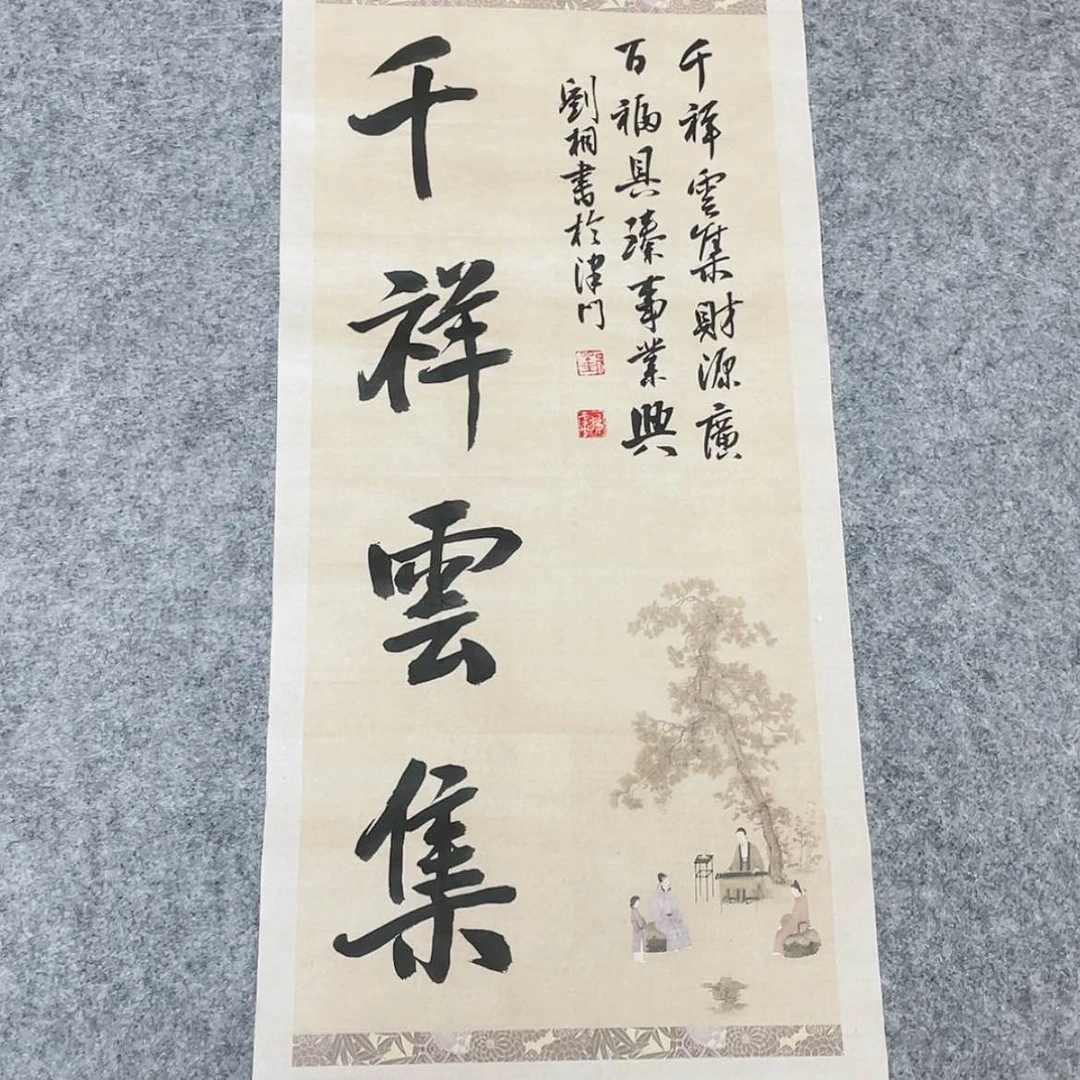 千祥雲集財源廣
百福具臻事業興
劉相書於津門
千祥雲集